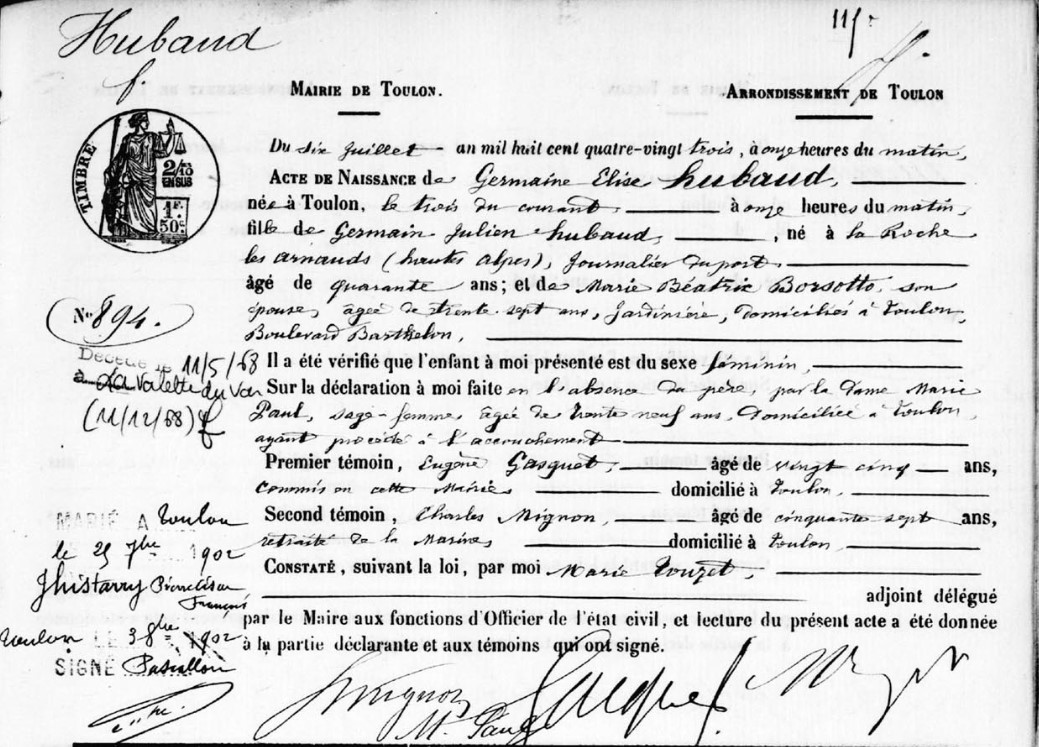 Hubaud
Mairie de Toulon.
Arrondissement de Toulon
TIMBRE
2/10
EN SUS
1F.
50c.
Du six Juillet an mil huit cent quatre-vingt trois, à onze heures du matin,
Acte de Naissance de Germaine Elise Hubaud,
née à Toulon, le trois du courant, à onze heures du matin,
fille de Germain Julien Hubaud, né à la Roche
les arnauds (hautes alpes), Journalier du port,
âgé de quarante ans; et de Marie Béatrix Borsotto, son
épouse, âgée de trente sept ans, Jardinière, domiciliés à Toulon,
Boulevard Barthelon,
No 894.
Il a été vérifié que l'enfant à moi présenté est du sexe féminin,
Sur la déclaration à moi faite en l'absence du père, par la dame Marie
Paul, sage-femme, âgée de trente neuf ans, Domiciliée à Toulon,
ayant procédé à l'accouchement
Premier témoin, Eugène Gasquet, âgé de vingt cinq ans,
commis en cette Mairie domicilié à Toulon,
Second témoin, Charles Mignon, âgé de cinquante sept ans,
retraité de la Marine, domicilié à Toulon,
Constaté, suivant la loi, par moi Marie
adjoint délégué
par le Maire aux fonctions d'Officier de l'état civil, et lecture du présent acte a été donnée
à la partie déclarante et aux témoins qui ont signé.
Décédée le 11/5/68
à La Valette du Var
(11/12/68)
MARIÉ A Toulon
le 25 7bre 1902
Toulon LE 3 8bre 1902
SIGNÉ
Mignon
M. Paul
Gasquet